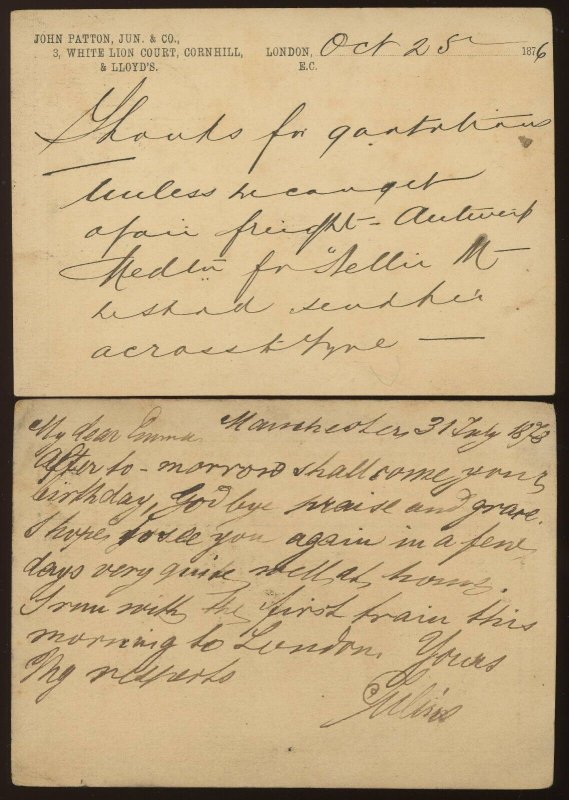 JOHN PATTON, JUN. & CO.,
3, WHITE LION COURT, CORNHILL,
& LLOYD'S.
LONDON, Oct 25 1876
E.C.
Thanks for quotations
Unless we can get
a fair freight - Antwerp
Medn for "Nellie M
we shad send her
across to Tyne —
My dear Emma, Manchester, 31 July 1873
After to-morrow shall come your
birthday, God bye praise and grace.
I hope to see you again in a few
days very quite well at home.
I run with the first train this
morning to London. Yours
My respects
Julius